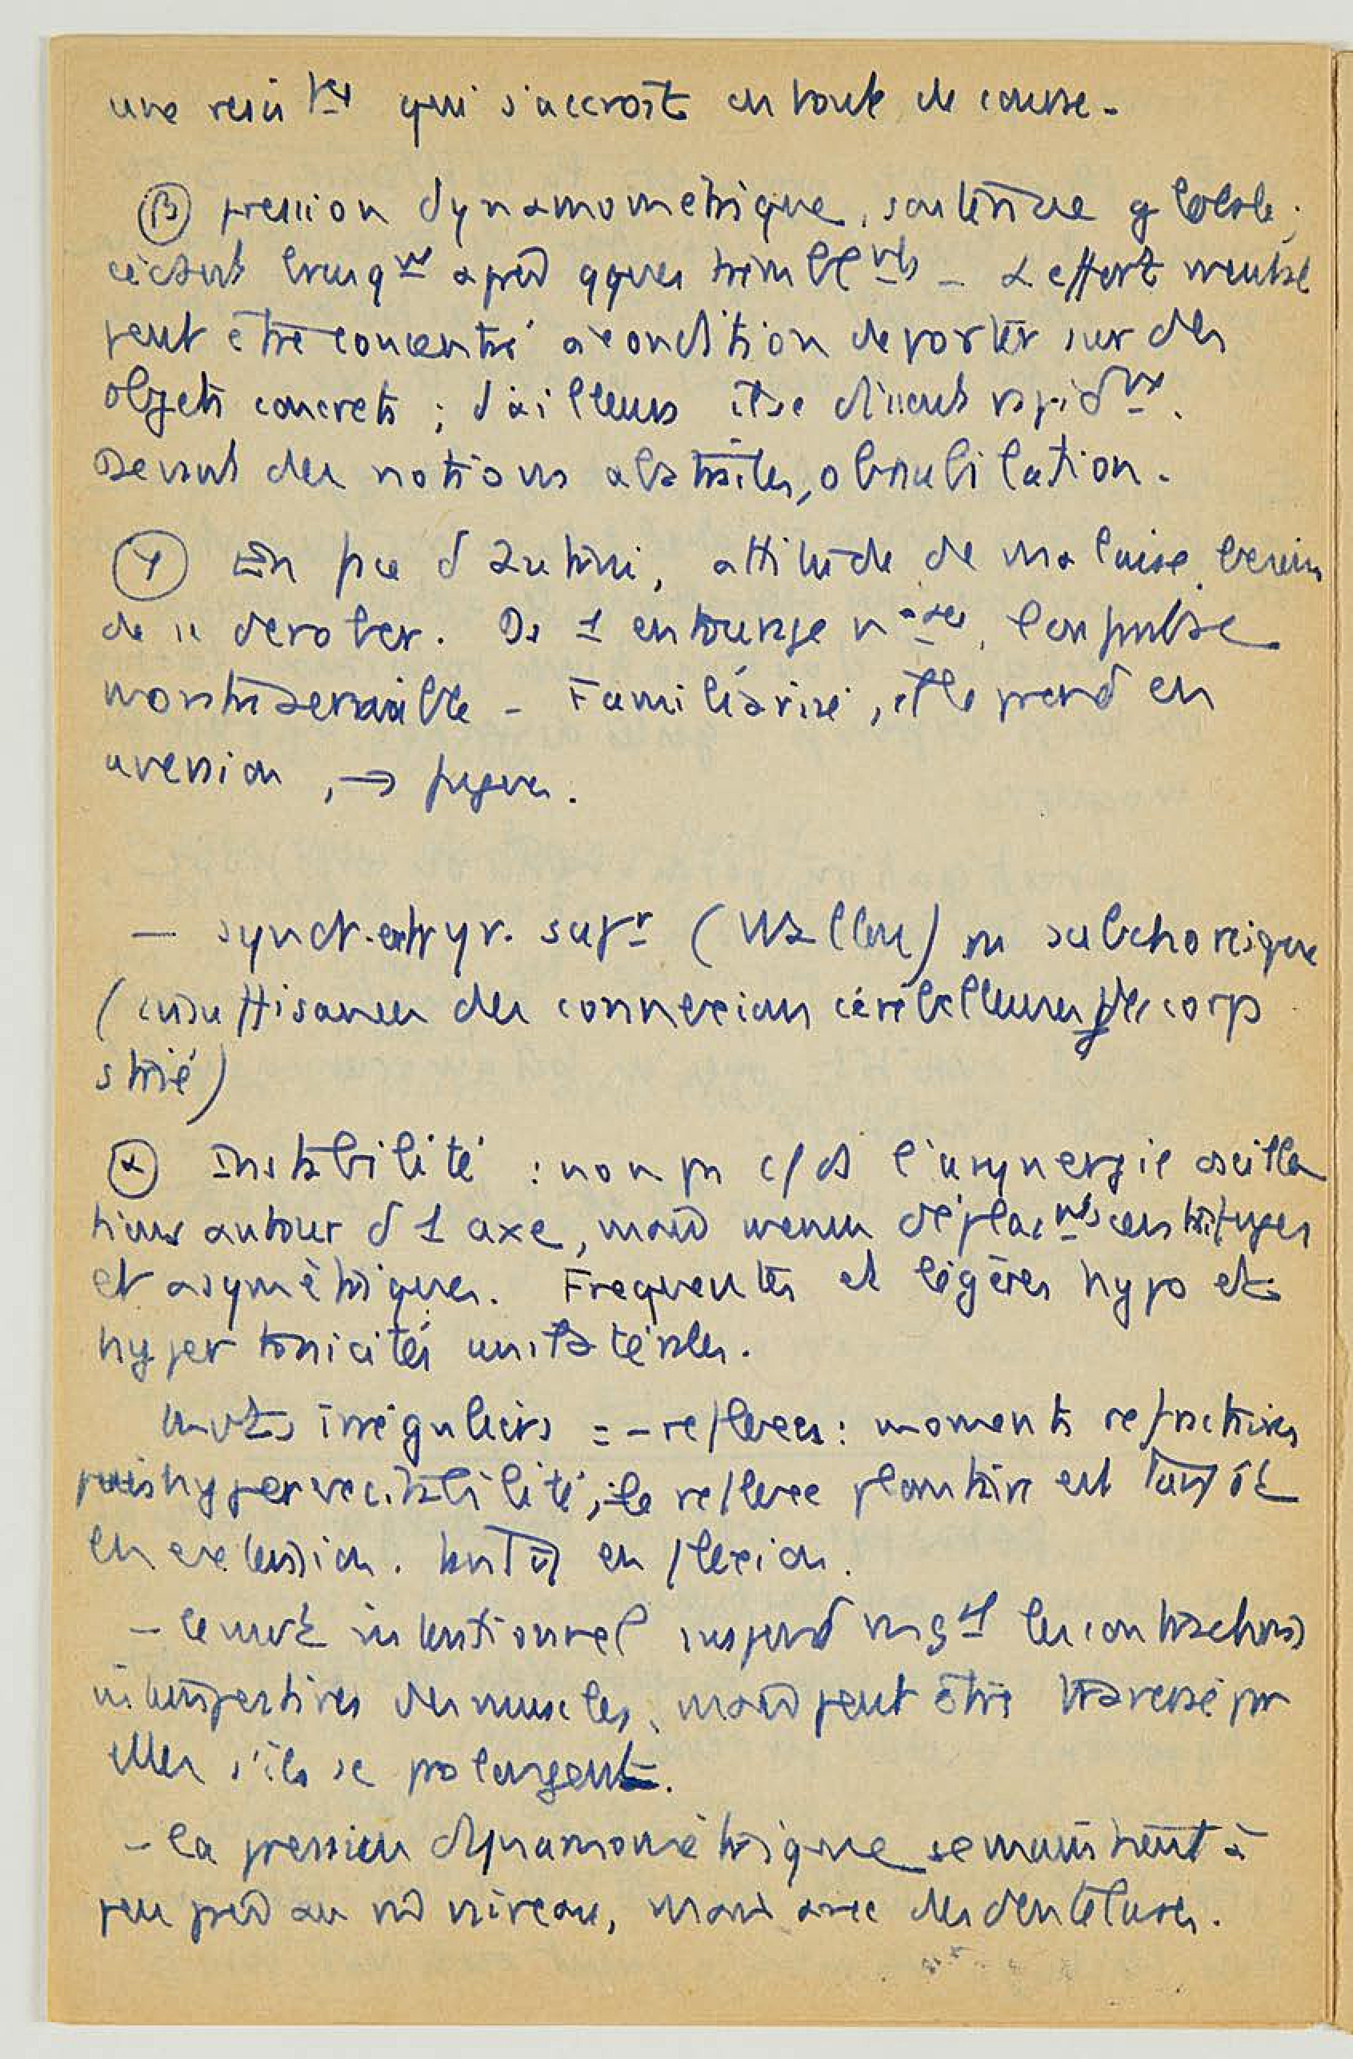 une rés qui s'accroit en toute de course.
β pression dynamométrique, soutenue globale,
cédant brusqnt après qques tremblnts - L effort mental
peut être concentré à condition de porter sur des
objets concrets ; d'ailleurs il se dissout rapidnt.
Devant des notions abstraites, obnubilation.
γ En fce d autrui, attitude de malaise, besoin
de se dérober. Ds 1 entourage nveau, l'on
. Familiarisé, il le prend en
aversion, → fugues.
— synd. extrapyr. supr (Wallon) ou subchoréique
(insuffisances des connexions cérébelleuses du corps
strié)
α Instabilité : non ps c/ ds l'asynergie oscilla
tions autour d 1 axe, mais menus déplacnts centrifuges
et asymétriques. Fréquentes et légères hypo et
hyper tonicités unilatérales.
mvts irréguliers = - reflexes : moments réfractaires
puis hyperexcitabilité ; le reflexe plantaire est tantôt
en extension. tantôt en flexion.
- le mvt intentionnel suspend les contractions
intempestives des muscles, mais peut être traversé par
elles s'ils se prolongent.
- la pression dynamométrique se maintient à
peu près au m niveau, mais avec des dentelures.